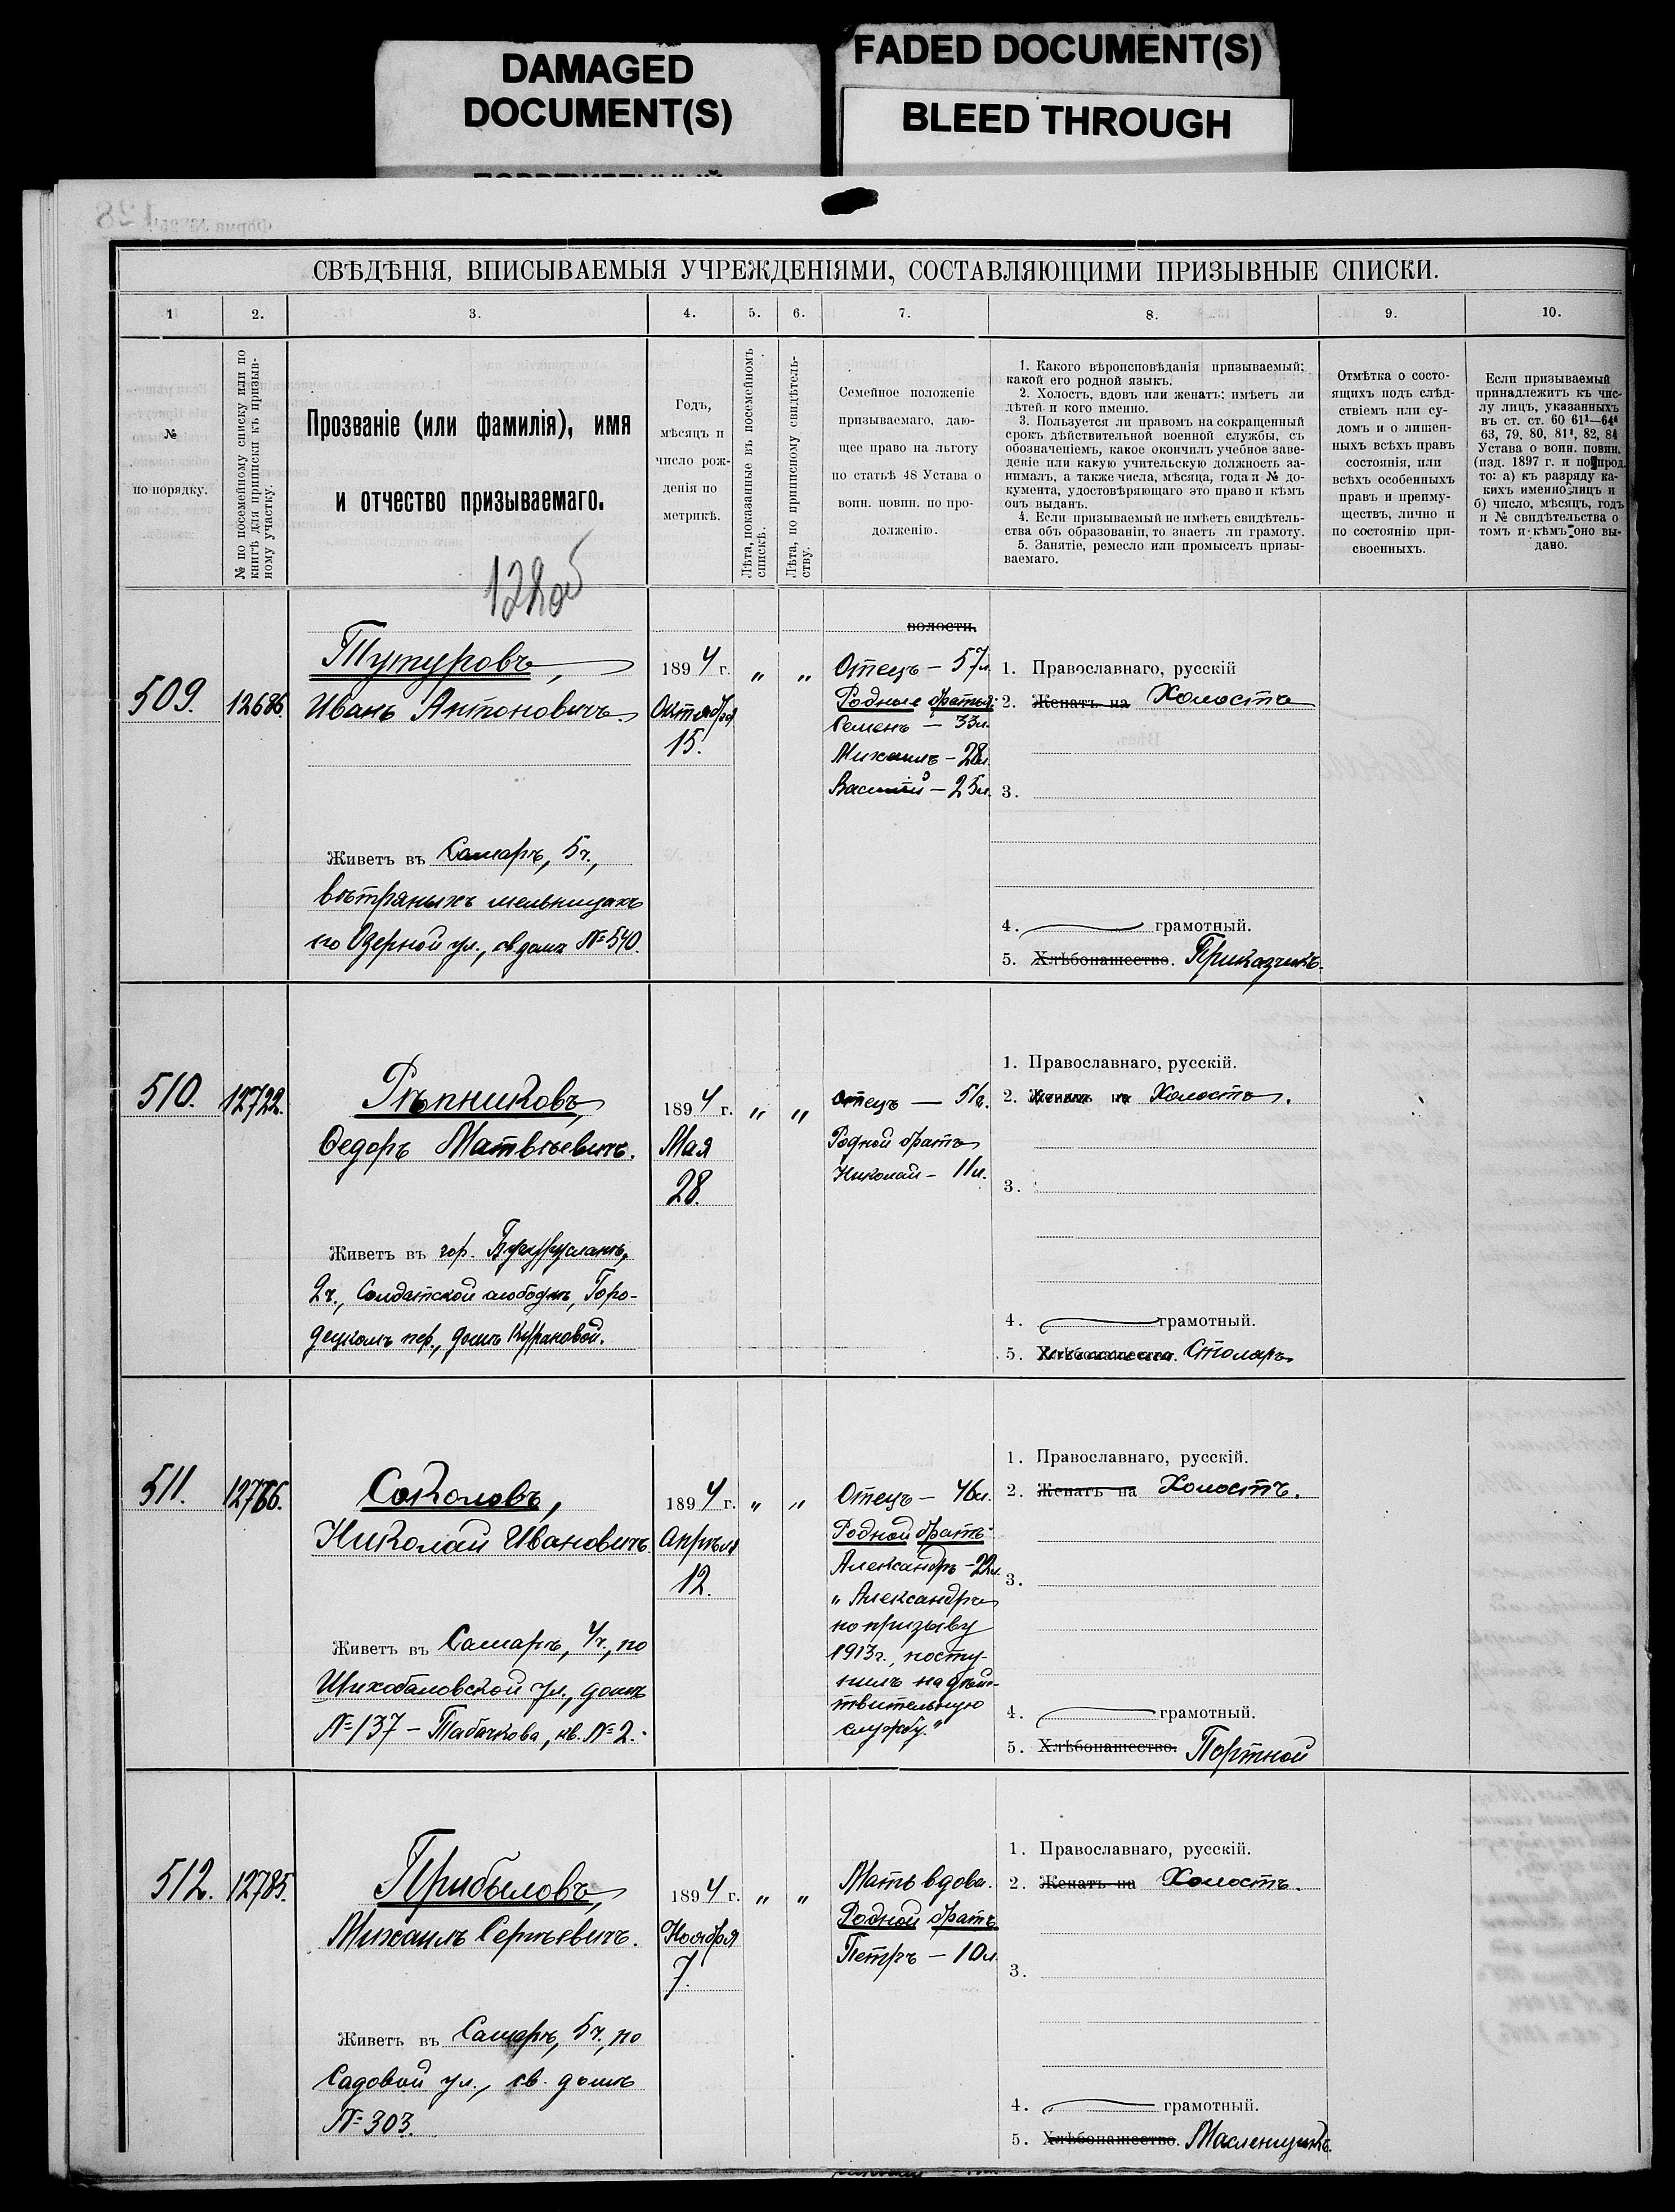 DAMAGED
DOCUMENT(S)
FADED DOCUMENT(S)
BLEED THROUGH
СВѢДѢНІЯ, ВПИСЫВАЕМЫЯ УЧРЕЖДЕНІЯМИ, СОСТАВЛЯЮЩИМИ ПРИЗЫВНЫЕ СПИСКИ.
1
2.
3.
4.
5.
6.
7.
8.
9.
10.
№
по порядку.
№ по посемейному списку или по
книгѣ для приписки къ призыв-
ному участку.
Прозваніе (или фамилія), имя
и отчество призываемаго.
Годъ,
мѣсяцъ и
число рож-
денія по
метрикѣ.
Лѣта, показанные въ посемейномъ
спискѣ.
Лѣта, по приписному свидѣтель-
ству.
Семейное положеніе
призываемаго, даю-
щее право на льготу
по статьѣ 48 Устава о
воин. повин. по про-
долженію.
1. Какого вѣроисповѣданія призываемый;
какой его родной языкъ.
2. Холостъ, вдовъ или женатъ; имѣетъ ли
дѣтей и кого именно.
3. Пользуется ли правомъ на сокращенный
срокъ дѣйствительной военной службы, съ
обозначеніемъ, какое окончилъ учебное заве-
деніе или какую учительскую должность за-
нималъ, а также числа, мѣсяца, года и № до-
кумента, удостовѣряющаго это право и кѣмъ
онъ выданъ.
4. Если призываемый не имѣетъ свидѣтель-
ства объ образованіи, то знаетъ ли грамоту.
5. Занятіе, ремесло или промыселъ призы-
ваемаго.
Отмѣтка о состо-
ящихъ подъ слѣд-
ствіемъ или су-
домъ и о лишен-
ныхъ всѣхъ правъ
состоянія, или
всѣхъ особенныхъ
правъ и преиму-
ществъ, лично и
по состоянію при-
своенныхъ.
Если призываемый
принадлежитъ къ чис-
лу лицъ, указанныхъ
въ ст. ст. 60 61¹—64⁴
63, 79, 80, 81¹, 82, 84
Устава о воин. повин.
(изд. 1897 г. и по прод.
то: а) къ разряду ка-
кихъ именно лицъ и
б) число, мѣсяцъ, годъ
и № свидѣтельства о
томъ и кѣмъ оно вы-
дано.
128об
509.
12686.
Тутуровъ,
Иванъ Антоновичъ.
Живетъ въ Самарѣ, 5ч.,
вѣтряныхъ мельницахъ
по Озерной ул., св. домъ № 540.
1894 г.
Октября
15.
„
„
волости.
Отецъ — 57л.
Родные братья:
Семенъ — 33л.
Михаилъ — 28л.
Василій — 25л.
1. Православнаго, русскій
2. Женатъ на Холостъ
3.
4. грамотный.
5. Хлѣбопашество. Приказчикъ.
510.
12722.
Рѣпниковъ,
Федоръ Матвѣевичъ.
Живетъ въ гор. Бугурусланѣ,
2ч., Солдатской слободкѣ, Горо-
децкомъ пер., домъ Курановой.
1894 г.
Мая
28.
„
„
Отецъ — 51г.
Родной братъ
Николай — 11л.
1. Православнаго, русскій.
2. Женатъ на Холостъ.
3.
4. грамотный.
5. Хлѣбопашество. Столяръ
511.
12766.
Соколовъ,
Николай Ивановичъ.
Живетъ въ Самарѣ, 4ч., по
Шихобаловской ул., домъ
№ 137 — Табачкова, кв. № 2.
1894 г.
Апрѣля
12.
„
„
Отецъ — 46л.
Родной братъ
Александръ — 22л.
„Александръ
по призыву
1913г., посту-
пилъ на дѣй-
ствительную
службу."
1. Православнаго, русскій.
2. Женатъ на Холостъ.
3.
4. грамотный.
5. Хлѣбопашество. Портной
512.
12785.
Прибыловъ,
Михаилъ Сергѣевичъ.
Живетъ въ Самарѣ, 5ч., по
Садовой ул., св. домъ
№ 303.
1894 г.
Ноября
7.
„
„
Мать вдова.
Родной братъ
Петръ — 10л.
1. Православнаго, русскій.
2. Женатъ на Холостъ.
3.
4. грамотный.
5. Хлѣбопашество. Масленщикъ